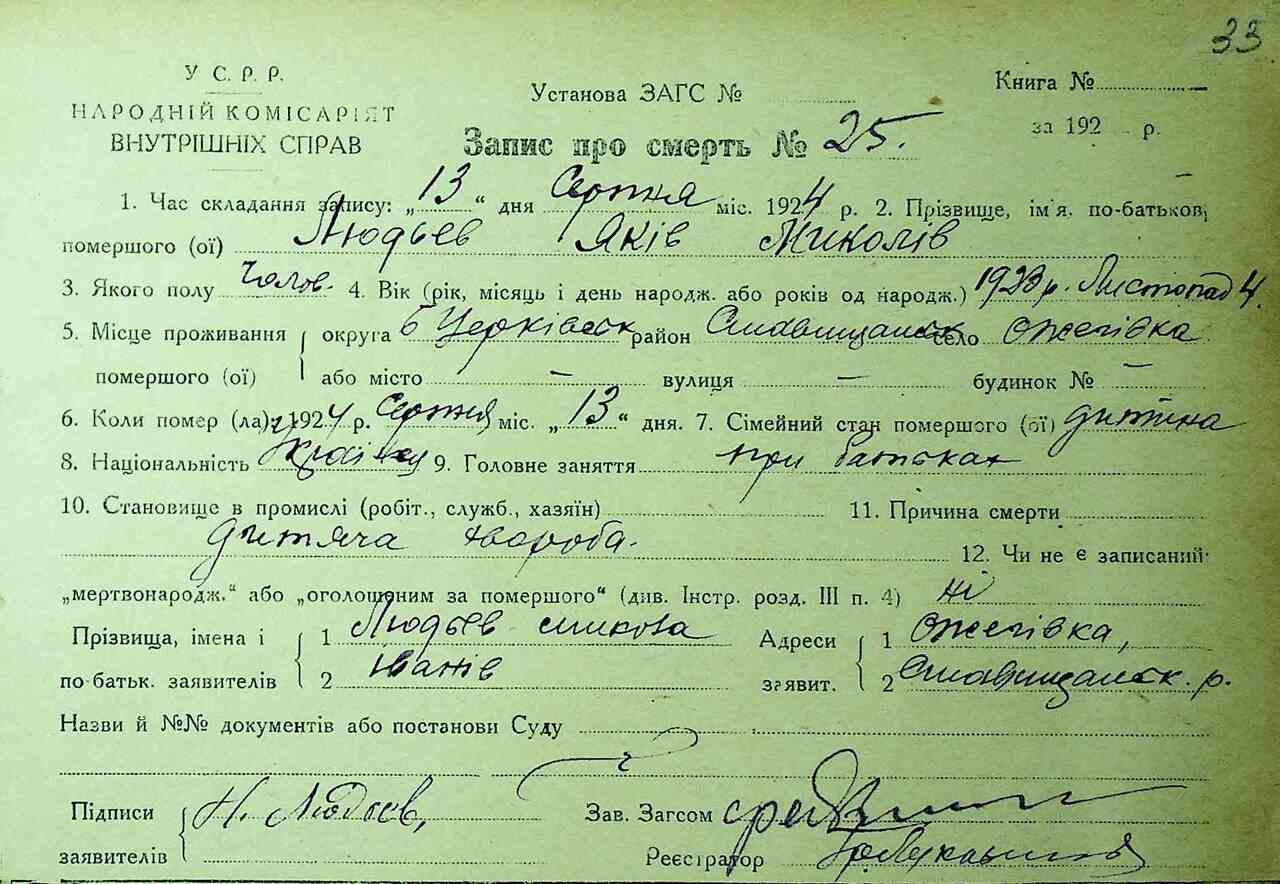 33
У С. Р. Р.
НАРОДНІЙ КОМІСАРІЯТ
ВНУТРІШНІХ СПРАВ
Установа ЗАГС №
Книга №
за 192 р.
Запис про смерть № 25.
1. Час складання запису: „13“ дня Серпня міс. 1924 р. 2. Прізвище, ім'я, по-батькові
помершого (ої) Людьєв Яків Миколів
3. Якого полу Чолов. 4. Вік (рік, місяць і день народж. або років од народж.) 1923 р. Листопад 4.
5. Місце проживання округа Б Церківськ район Ставищанськ село Ожегівка
помершого (ої) або місто — вулиця — будинок № —
6. Коли помер (ла) 1924 р. Серпня міс. „13“ дня. 7. Сімейний стан помершого (ої) дитина
8. Національність 9. Головне заняття при батьках
10. Становище в промислі (робіт., служб., хазяїн) 11. Причина смерти
дитяча хвороба. 12. Чи не є записаний
„мертвонародж.“ або „оголошеним за помершого“ (див. Інстр. розд. III п. 4) ні
Прізвища, імена і 1 Людьєв Микола Адреси 1 Ожегівка,
по-батьк. заявителів 2 Іванів заявит. 2 Ставищанськ. р.
Назви й №№ документів або постанови Суду
Підписи Н. Людьєв, Зав. Загсом
заявителів Реєстратор